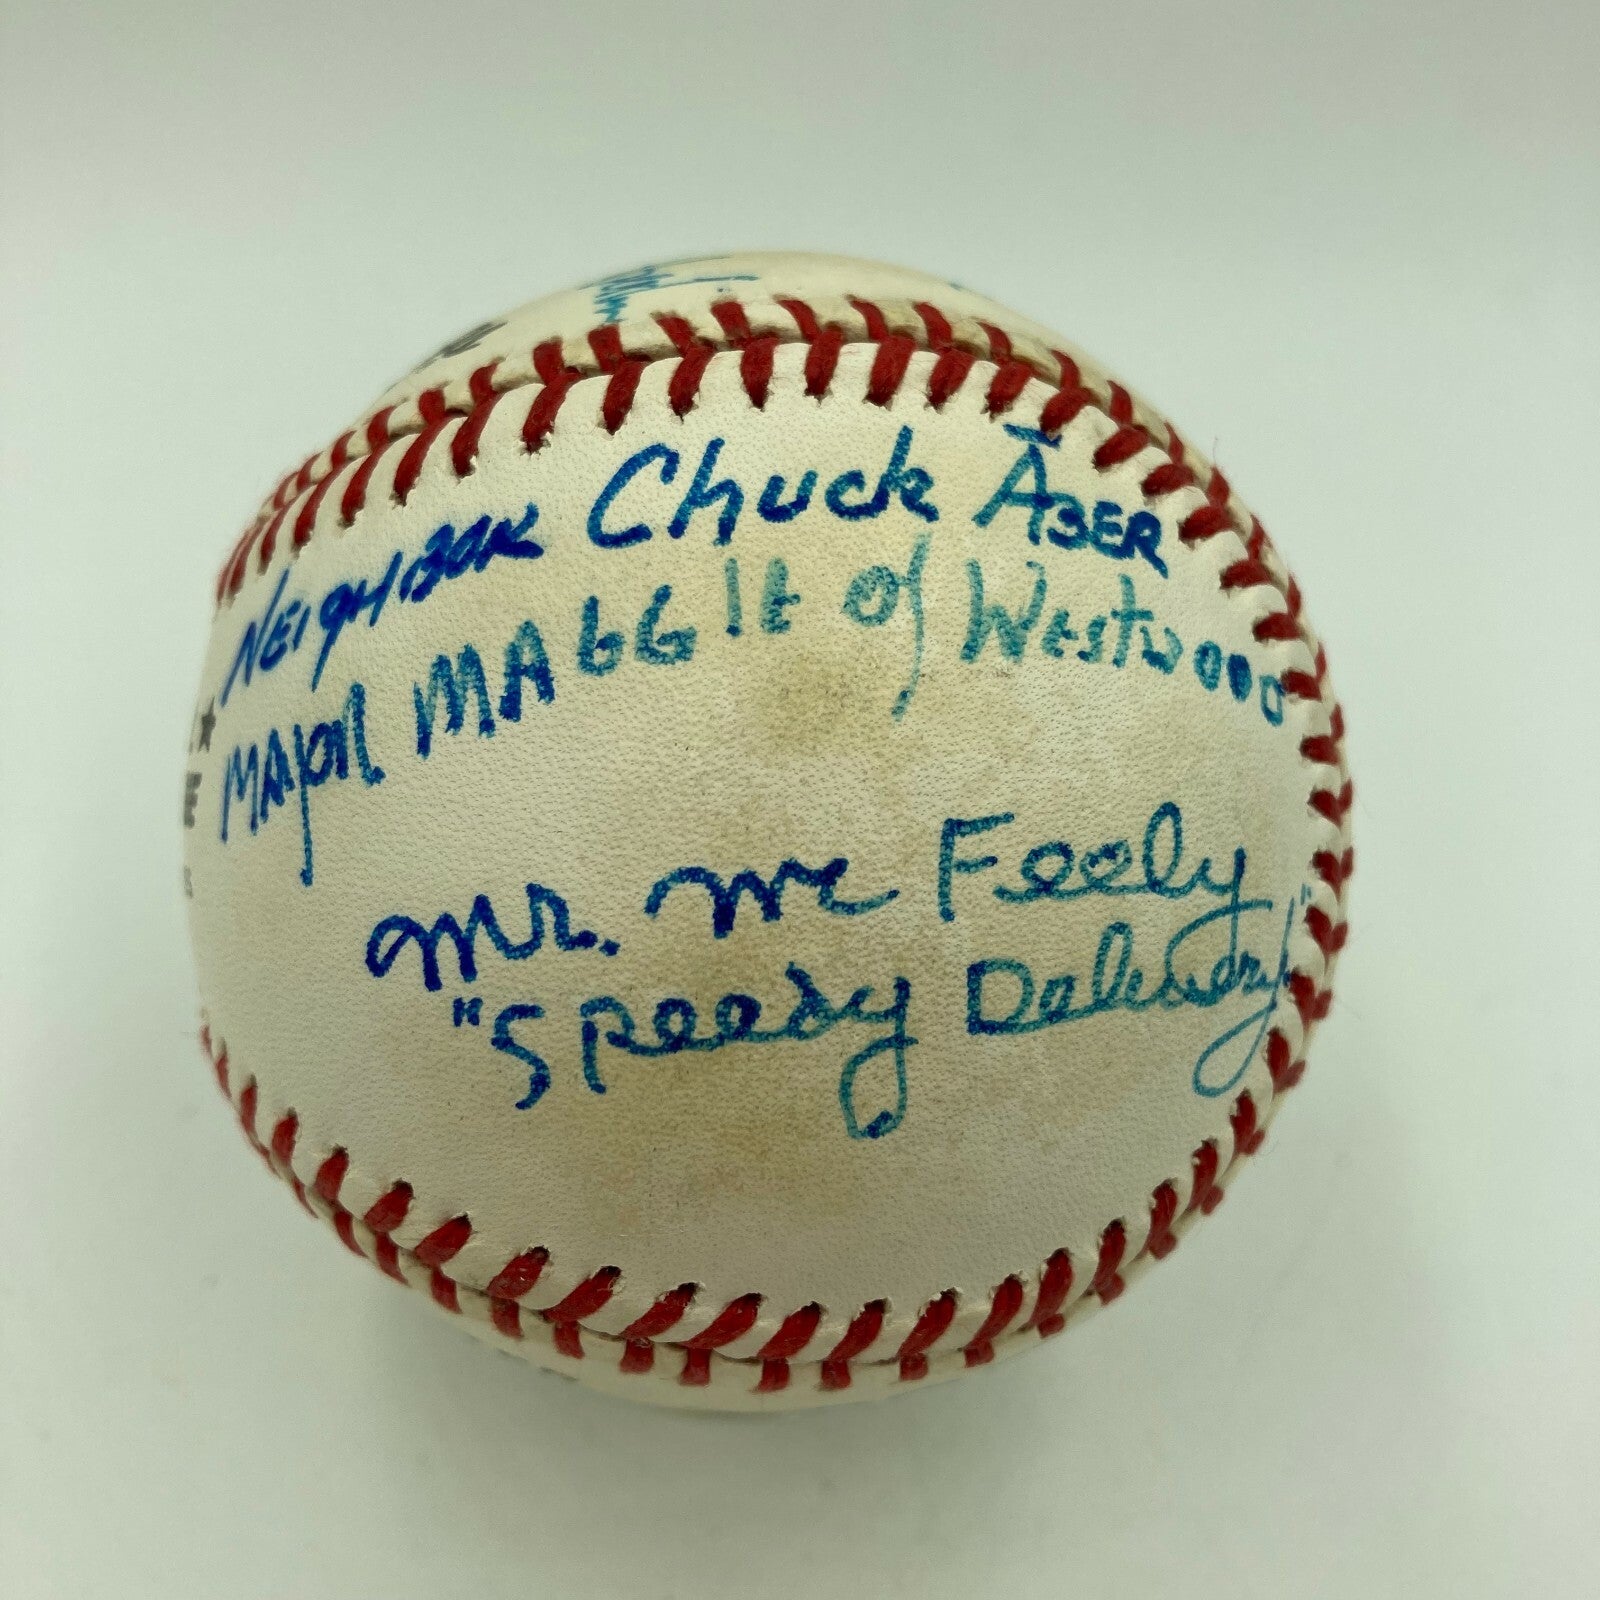 NEIGHBOR Chuck ABER
MAYOR MAGGIE of Westwood
Mr. Mc Feely
"Speedy Delivery"